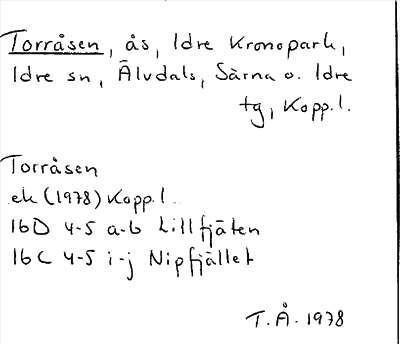 Torråsen, ås, Idre Kronopark,
Idre sn, Älvdals, Särna o. Idre
tg, Kopp.l.
Torråsen
ek (1978) Kopp.l.
16D 4-5 a-b Lillfjäten
16C 4-5 i-j Nipfjället
T.Å. 1978